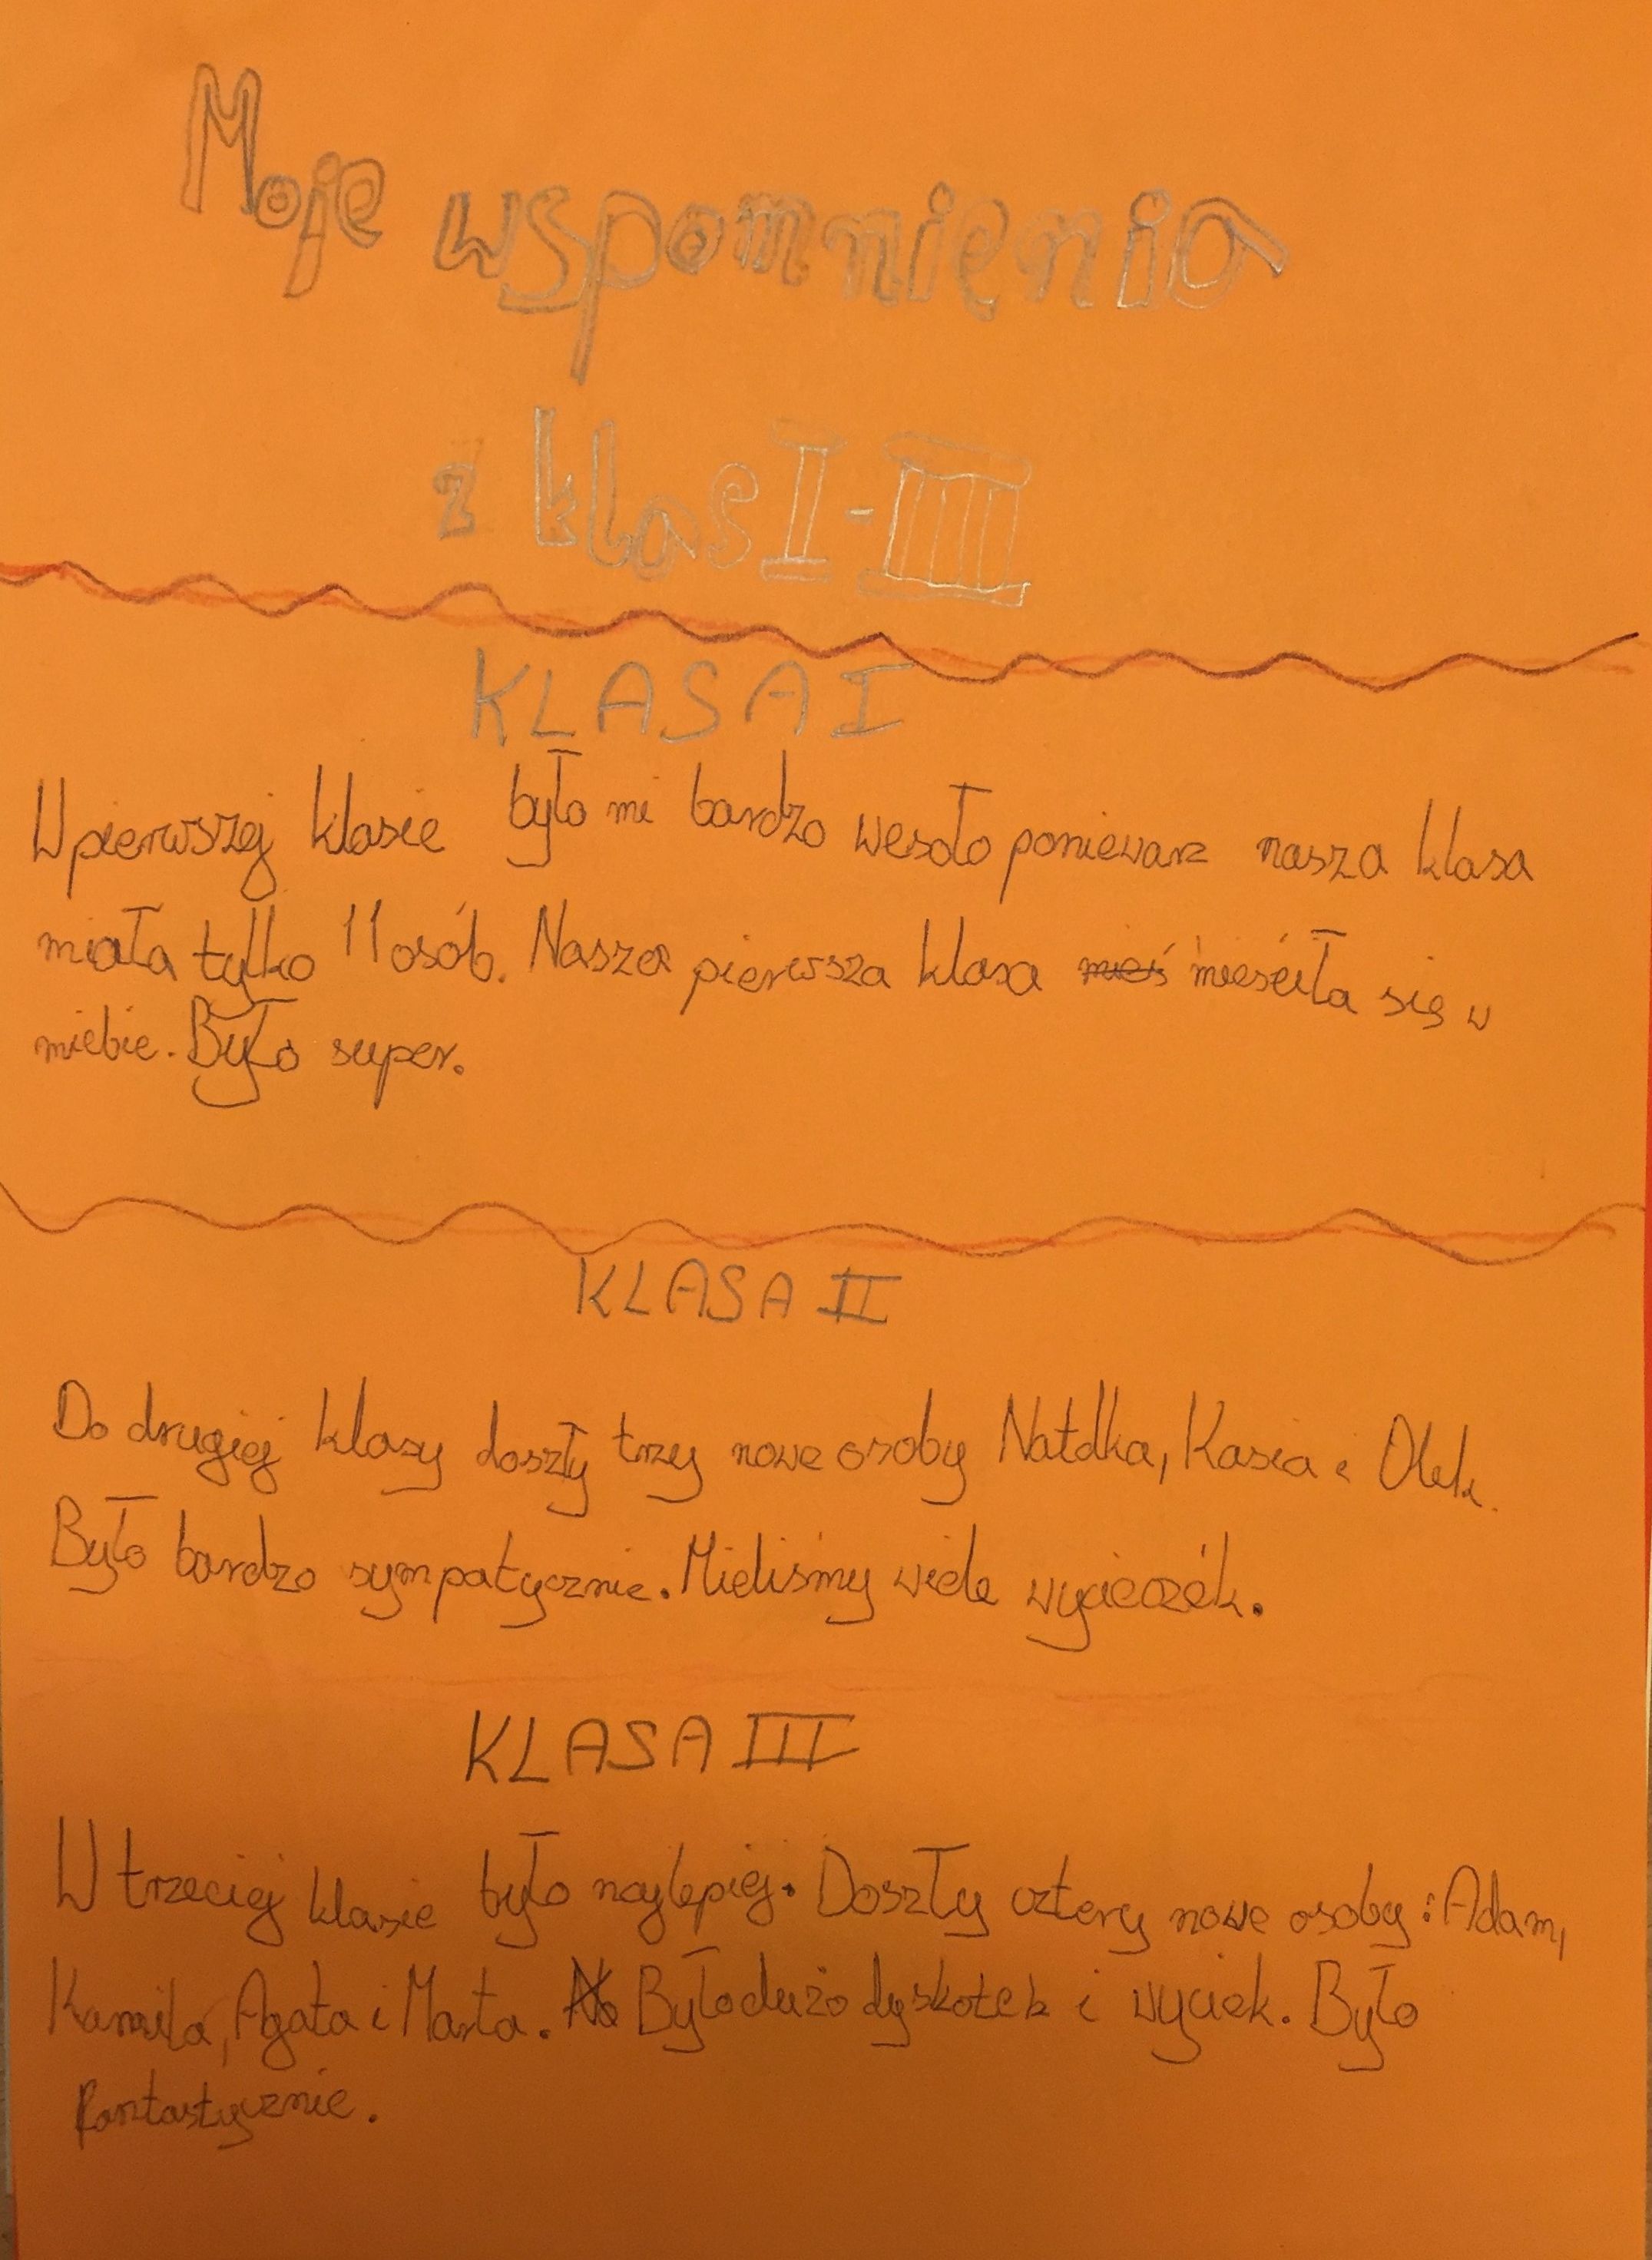 Moje wspomnienia
z klas I-III
KLASA I
W pierwszej klasie było mi bardzo wesoło poniewarz nasza klasa
miała tylko 11 osób. Nasza pierwsza klasa mieś mieściła się w
niebie. Było super.
KLASA II
Do drugiej klasy doszły trzy nowe osoby Natalka, Kasia i Olek.
Było bardzo sympatycznie. Mieliśmy wiele wycieczék.
KLASA III
W trzeciej klasie było najlepiej. Doszły cztery nowe osoby: Adam,
Kamila, Agata i Marta. Było dużo dyskotek i wyciek. Było
fantastycznie.